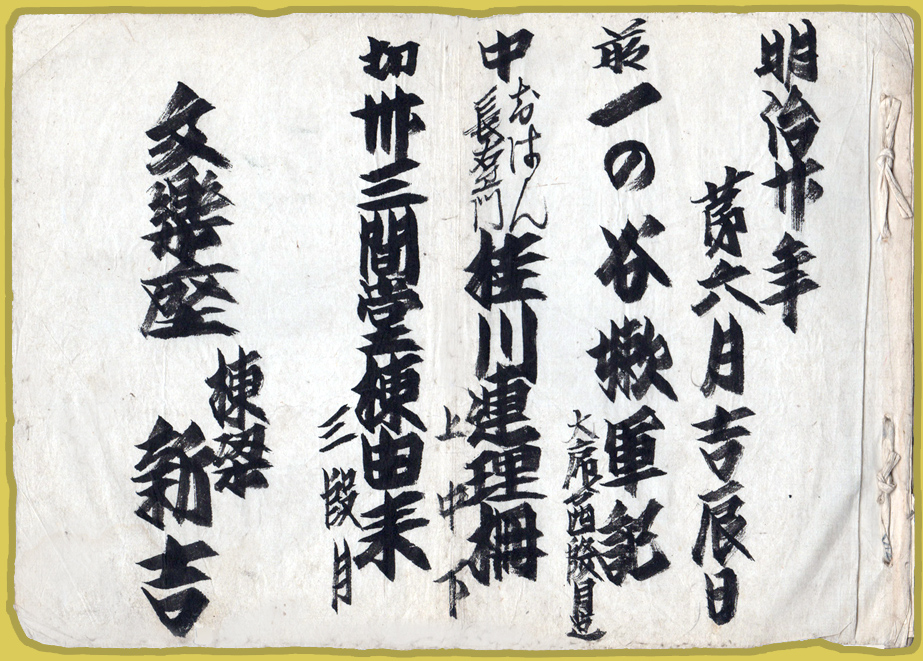 明治廿年
第六月吉辰日
前 一の谷嫩軍記
中 おはん
長右衛門
桂川連理柵
上中下
切 卅三間堂棟由来
三段目
文樂座
棟梁
新吉